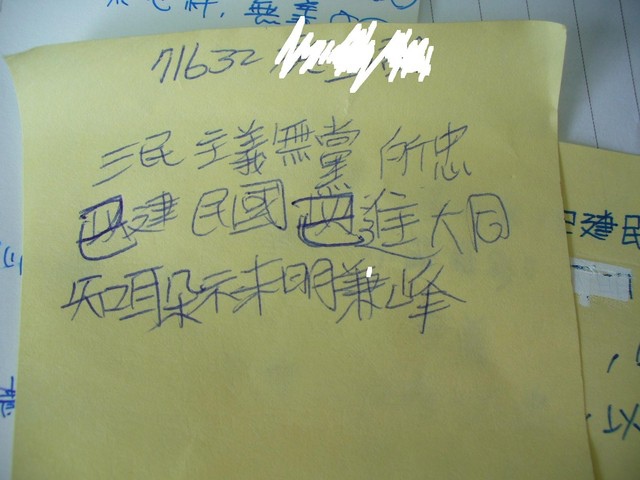 無美
71632
三民主義無黨所忠
建民國 進大同
知耳朵示未明兼峰
建民